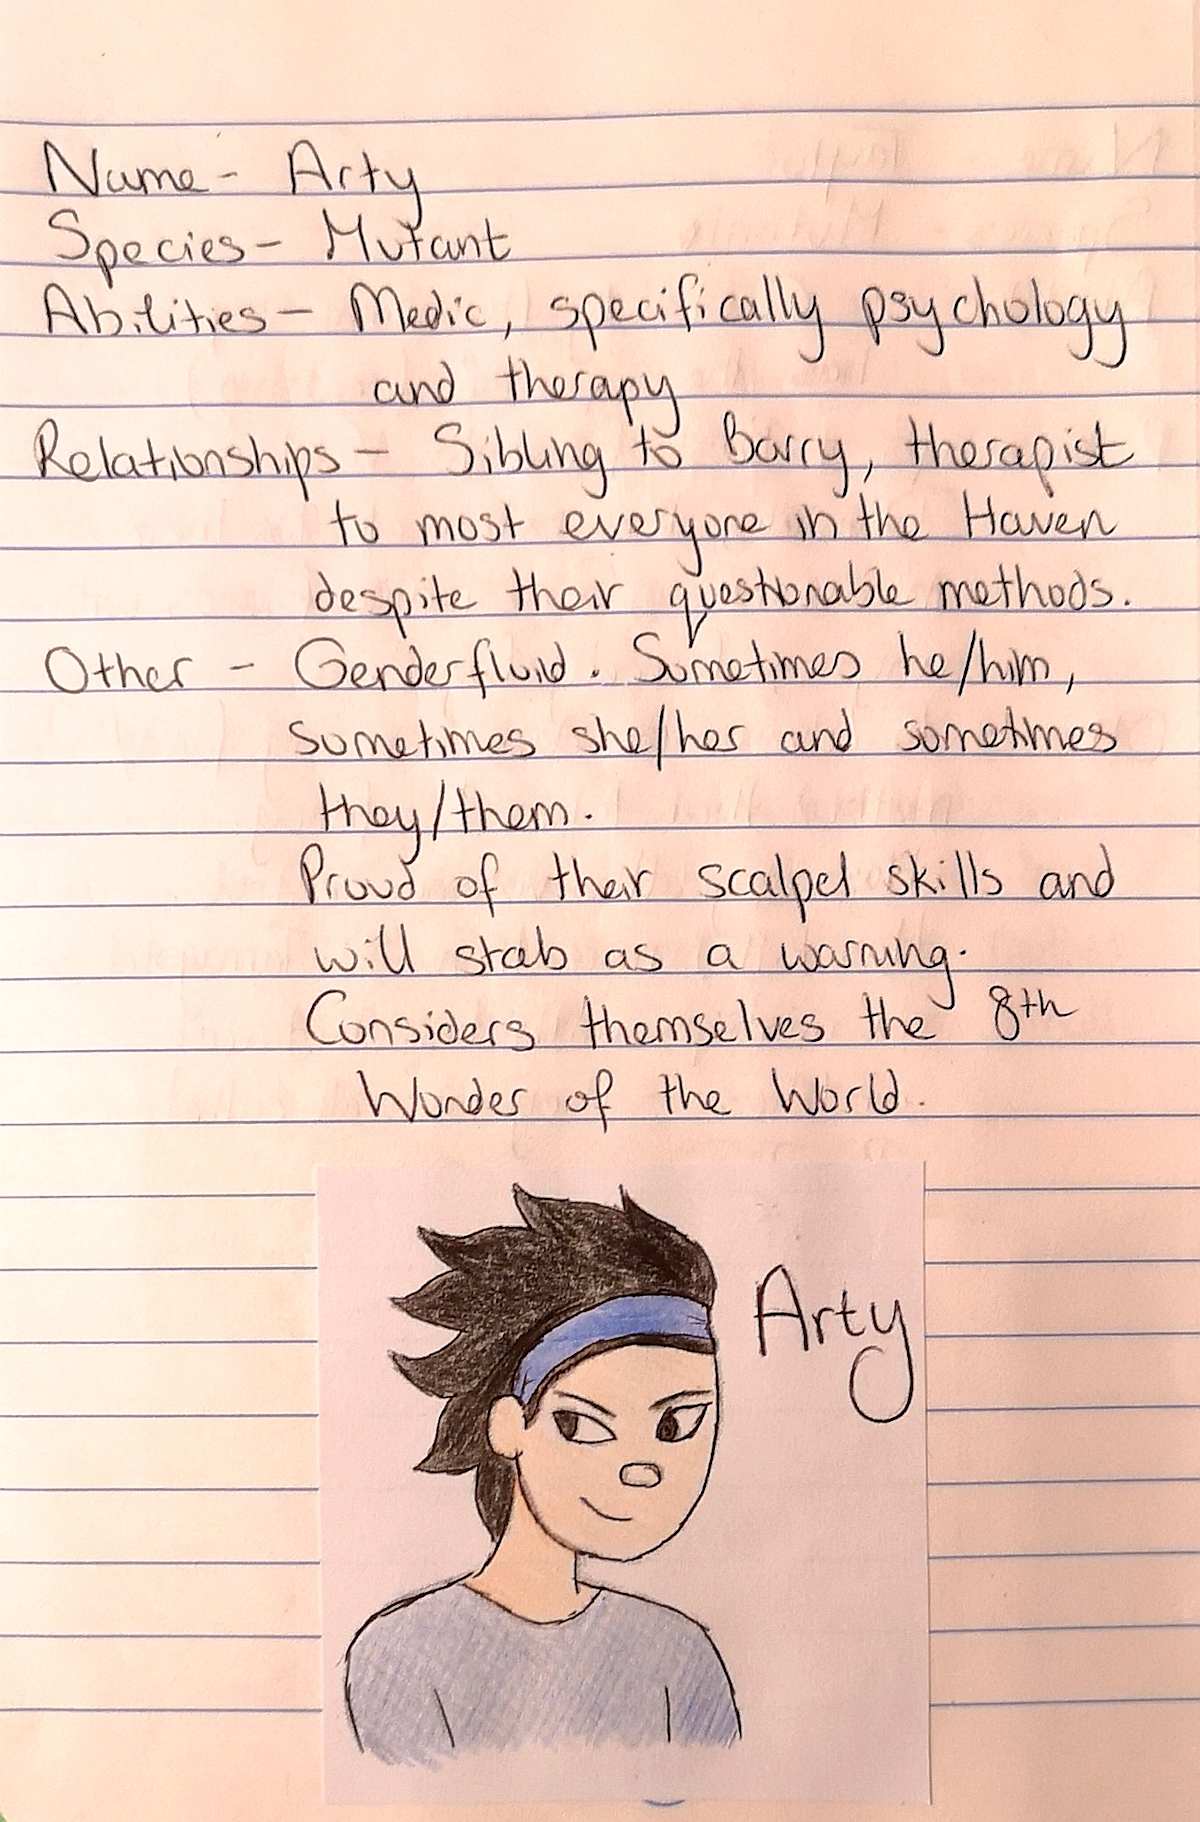 Name - Arty
Species - Mutant
Abilities - Medic, specifically psychology
and therapy
Relationships - Sibling to Barry, therapist
to most everyone in the Haven
despite their questionable methods.
Other - Genderfluid. Sometimes he/him,
sometimes she/her and sometimes
they/them.
Proud of their scalpel skills and
will stab as a warning.
Considers themselves the 8th
Wonder of the World.
Arty